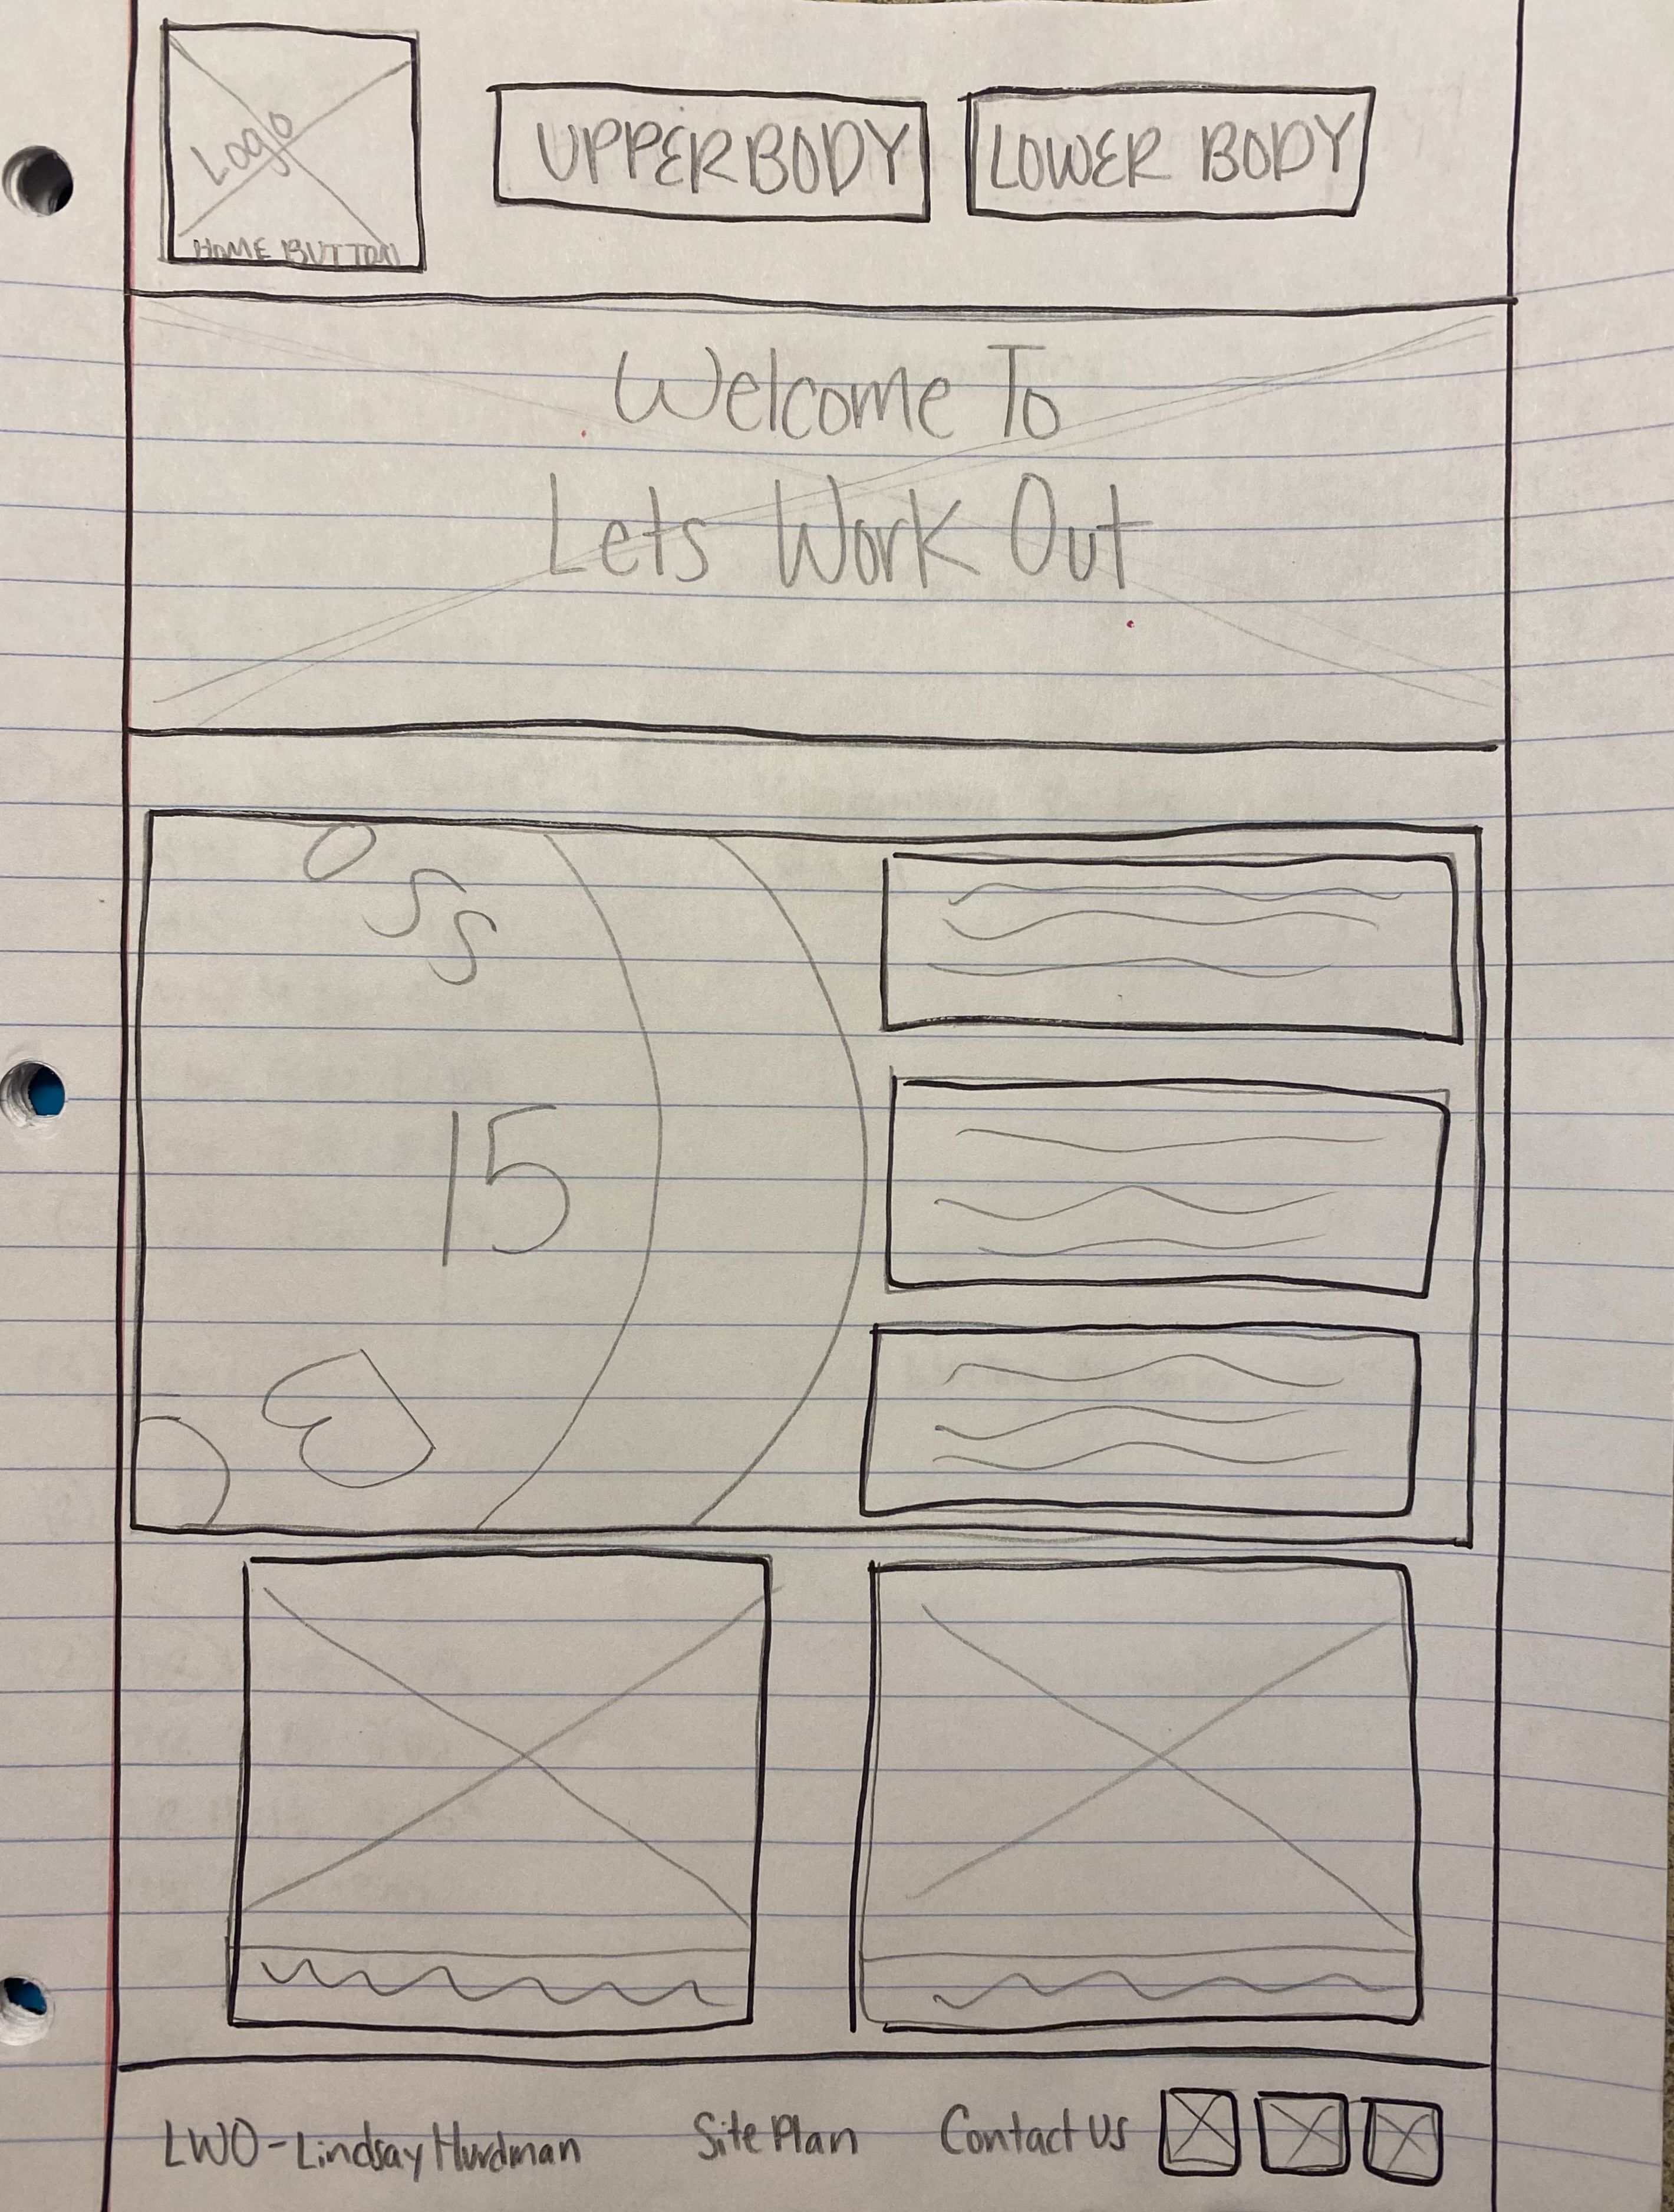 Logo
HOME BUTTON
UPPER BODY
LOWER BODY
Welcome To
Lets Work Out
15
LWO-Lindsay Hurdman
Site Plan
Contact Us